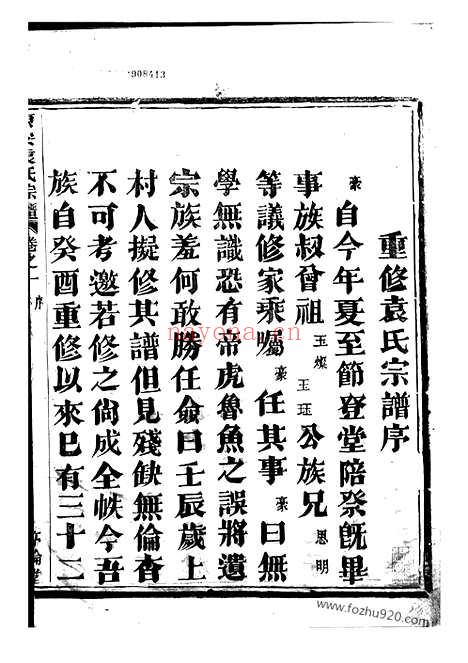 908413
重修袁氏宗譜序
豪自今年夏至節登堂陪祭既畢
事族叔曾祖玉燦玉珏公族兄恩明
等議修家乘囑豪任其事豪曰無
學無識恐有帝虎魯魚之誤將遺
宗族羞何敢勝任僉曰壬辰歲上
村人擬修其譜但見殘缺無倫杳
不可考邀若修之尙成全帙今吾
族自癸酉重修以來巳有三十二
袁氏宗譜 卷之一 序
nayona.cn
www.fozhu920.com